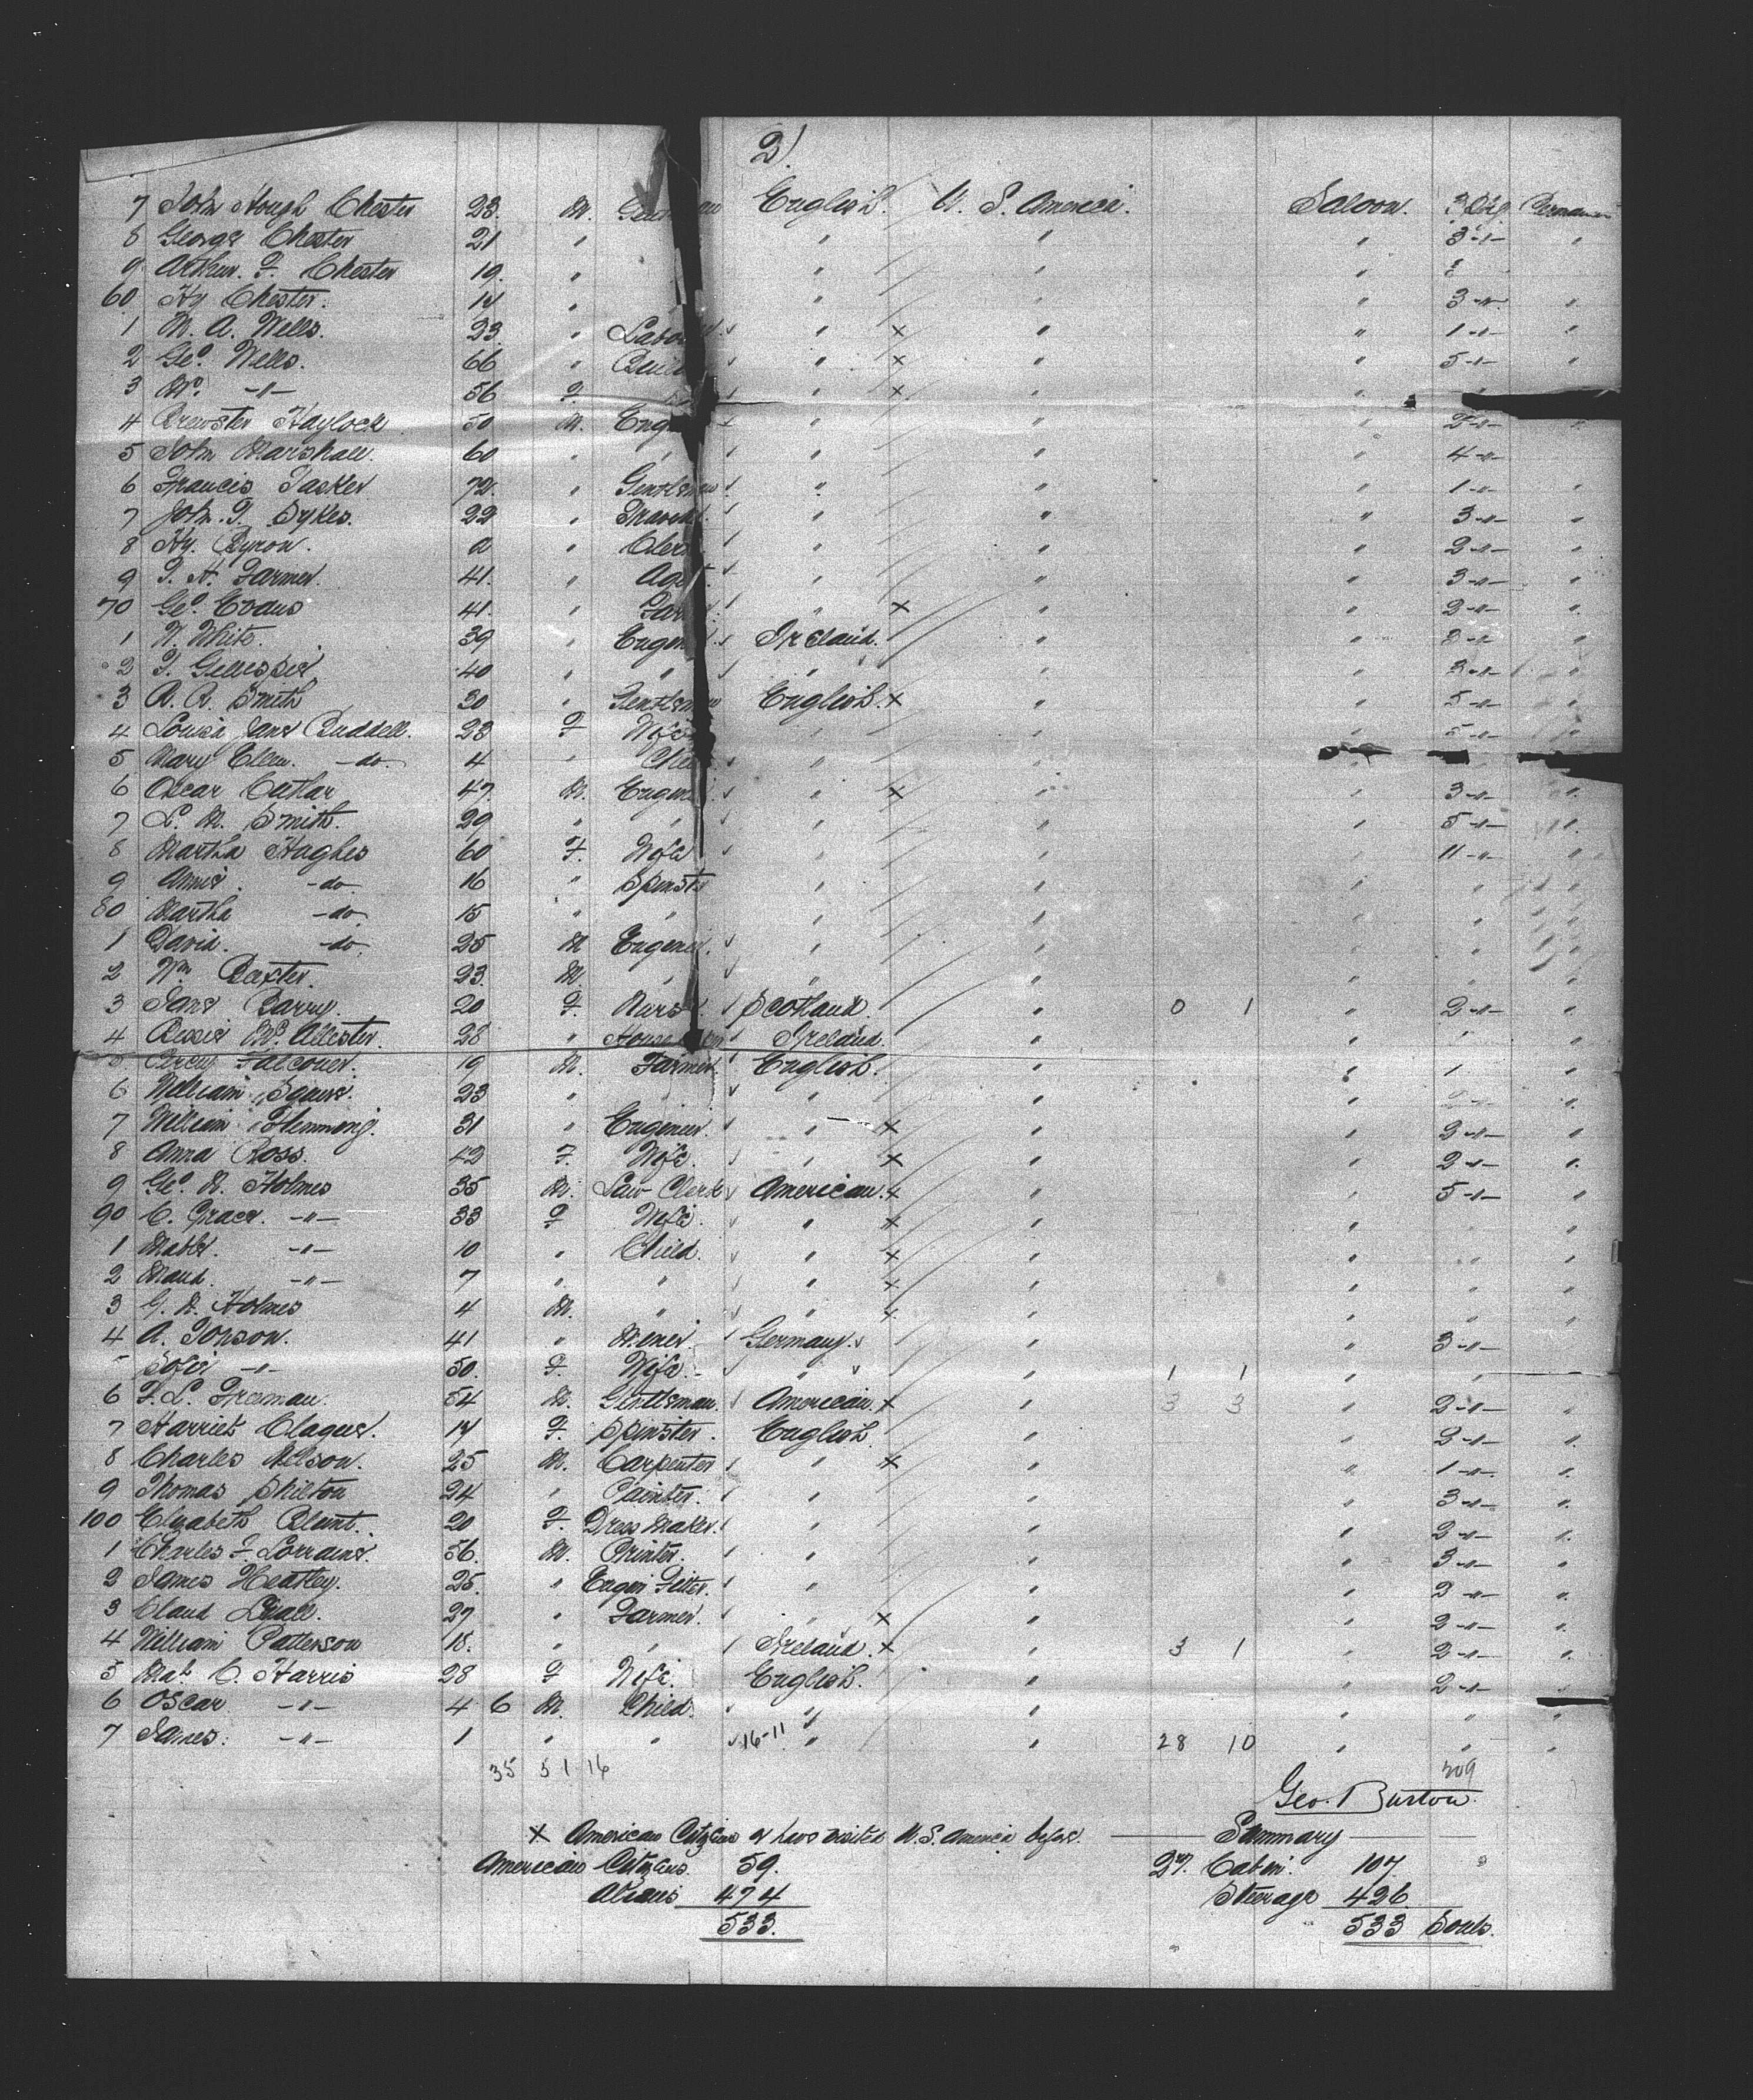 2)
7 John Hough Chester 23. M. English. U. S. America. Saloon. 3 Pkg.
8 George Chester 21 " " " " 3 -"- "
9 Arthur. F. Chester 19. " " " "
60 Hy Chester. 14 " " " " 3 -"- "
1 M. A. Wells. 23. " " × " " 1 -"- "
2 Geo. Wells. 66 " " × " " 5 -"- "
3 Mrs. -"- 56 F. " × " "
4 Brewster Haylock 50 M. " " " 2 -"- "
5 John Marshall. 60 " " " " " 4 -"-
6 Francis Tasker 72. " Gentleman " " " 1 -"- "
7 John. T. Sykes. 22 " " " " 3 -"- "
8 Hy. Byron. a " Clerk " " " 2 -"- "
9 T. H. Farmer. 41. " Agent. " " " 3 -"- "
70 Geo. Evans 41. " " × " " 2 -"- "
1 W. White. 39 " Ireland. " " "
2 T. Gillespie 40 " " " " " 3 -"- "
3 A. R. Smith 30 " Gentleman English. × " " 5 -"- "
4 Louisa Jane Buddell. 23 F Wife " " " 5 -"- "
5 Mary Ellen. -do- 4 " " " "
6 Oscar 47. M. " × " " 3 -"- "
7 L. M. Smith. 29 " " " " " 5 -"- "
8 Martha Hughes 60 F. Wife " " " 11 -"- "
9 Annie. -do- 16 " Spinster " " " "
80 Martha -do- 15 " " " " " "
1 David. -do- 25 M Engineer. " " " "
2 Wm. Baxter. 23. M. " " " " "
3 Jane Barry. 20 F. Nurse. Scotland. " 0 1 " 2 -"- "
4 Bessie McAllester. 28 " Ireland. " " "
5 Percy Falconer. 19 M. Farmer. English. " " 1 "
6 William 23 " " " " "
7 William Flemming. 31 " Engineer. " × " " 2 -"- "
8 Anna Ross. 42 F. Wife. " × " " 2 -"- "
9 Geo. H. Holmes 35 M. Law Clerk American. × " " 5 -"- "
90 C. Grace. -"- 33 F Wife. " × " " "
1 Mabel. -"- 10 " Child. " × " " "
2 Maud. -"- 7 " " " × " " "
3 G. H. Holmes 4 M. " " × " " "
4 A. 41 " Miner. Germany. " " 3 -"-
5 -"- 50. F. Wife. " " 1 1 " "
6 F. L. Freeman. 54 M. Gentleman. American. × " 3 3 " 2 -"- "
7 Harriet Clague. 17 F. Spinster. English. " 2 -"- "
8 Charles Nelson. 25 M. Carpenter " × " 1 -"- "
9 Thomas Shilton 24 " Painter. " " 3 -"- "
100 Elizabeth Blunt. 20 F. Dress Maker. " " 2 -"- "
1 Charles F. Lorraine. 56. M. Printer. " " 3 -"- "
2 James Heatley. 25. " Engin Fitter. " " 2 -"- "
3 Claud Lyall. 27 " Farmer. " × " " 2 -"- "
4 William Patterson 18. " " Ireland. × " 3 1 " 2 -"- "
5 C. Harris 28 F Wife. English. " " 2 -"- "
6 Oscar -"- 4 6 M. Child. " " " " "
7 James. -"- 1 " " 16-11 " " 28 10 " " "
35 51 16
309
Geo. Burton.
× American Citizens or have visited U. S. America before.
Summary
American Citizens. 59. 2nd. Cabin. 107
Aliens 474 Steerage 426
533. 533 Souls.